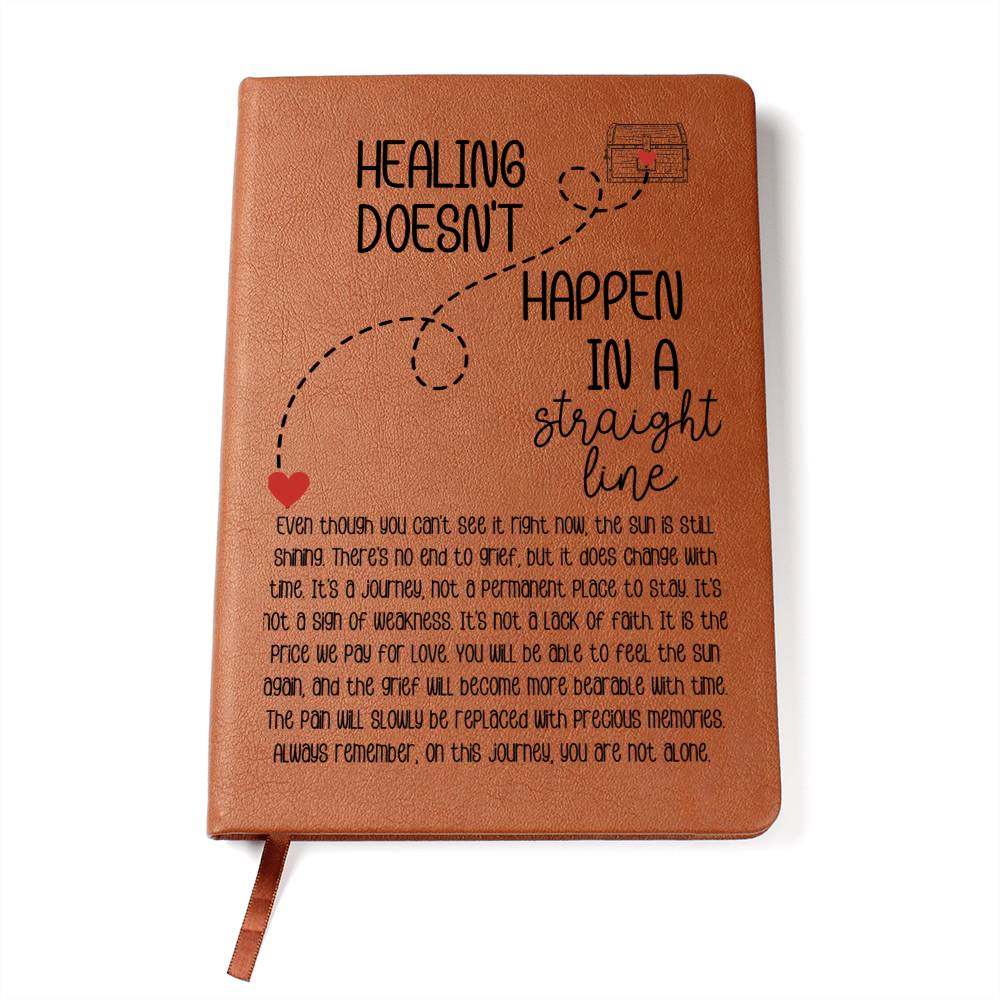 HEALING
DOESN'T
HAPPEN
IN A
straight
line
Even though you can't see it right now, the sun is still
shining. There's no end to grief, but it does change with
time. It's a journey, not a permanent place to stay. It's
not a sign of weakness. It's not a lack of faith. It is the
price we pay for love. You will be able to feel the sun
again, and the grief will become more bearable with time.
The pain will slowly be replaced with precious memories.
Always remember, on this journey, you are not alone.